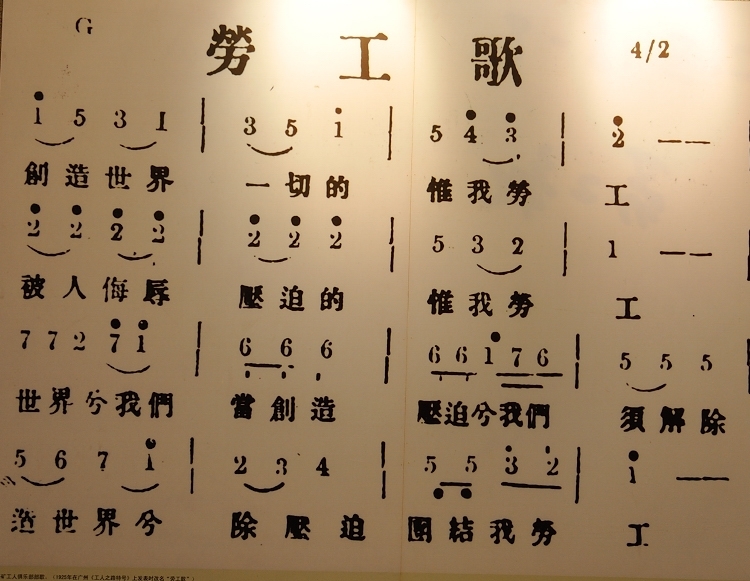 G 勞工歌 4/2
1 5 3 1 | 3 5 1 | 5 4 3 | 2 — —
創造世界 一切的 惟我勞 工
2 2 2 2 | 2 2 2 | 5 3 2 | 1 — —
被人侮辱 壓迫的 惟我勞 工
7 7 2 7 1 | 6 6 6 | 6 6 1 7 6 | 5 5 5
世界兮我們 當創造 壓迫兮我們 須解除
5 6 7 1 | 2 3 4 | 5 5 3 2 | 1 — —
造世界兮 除壓迫 團結我勞 工
矿工人俱乐部部歌。（1925年在广州《工人之路特号》上发表时改名“劳工歌”）